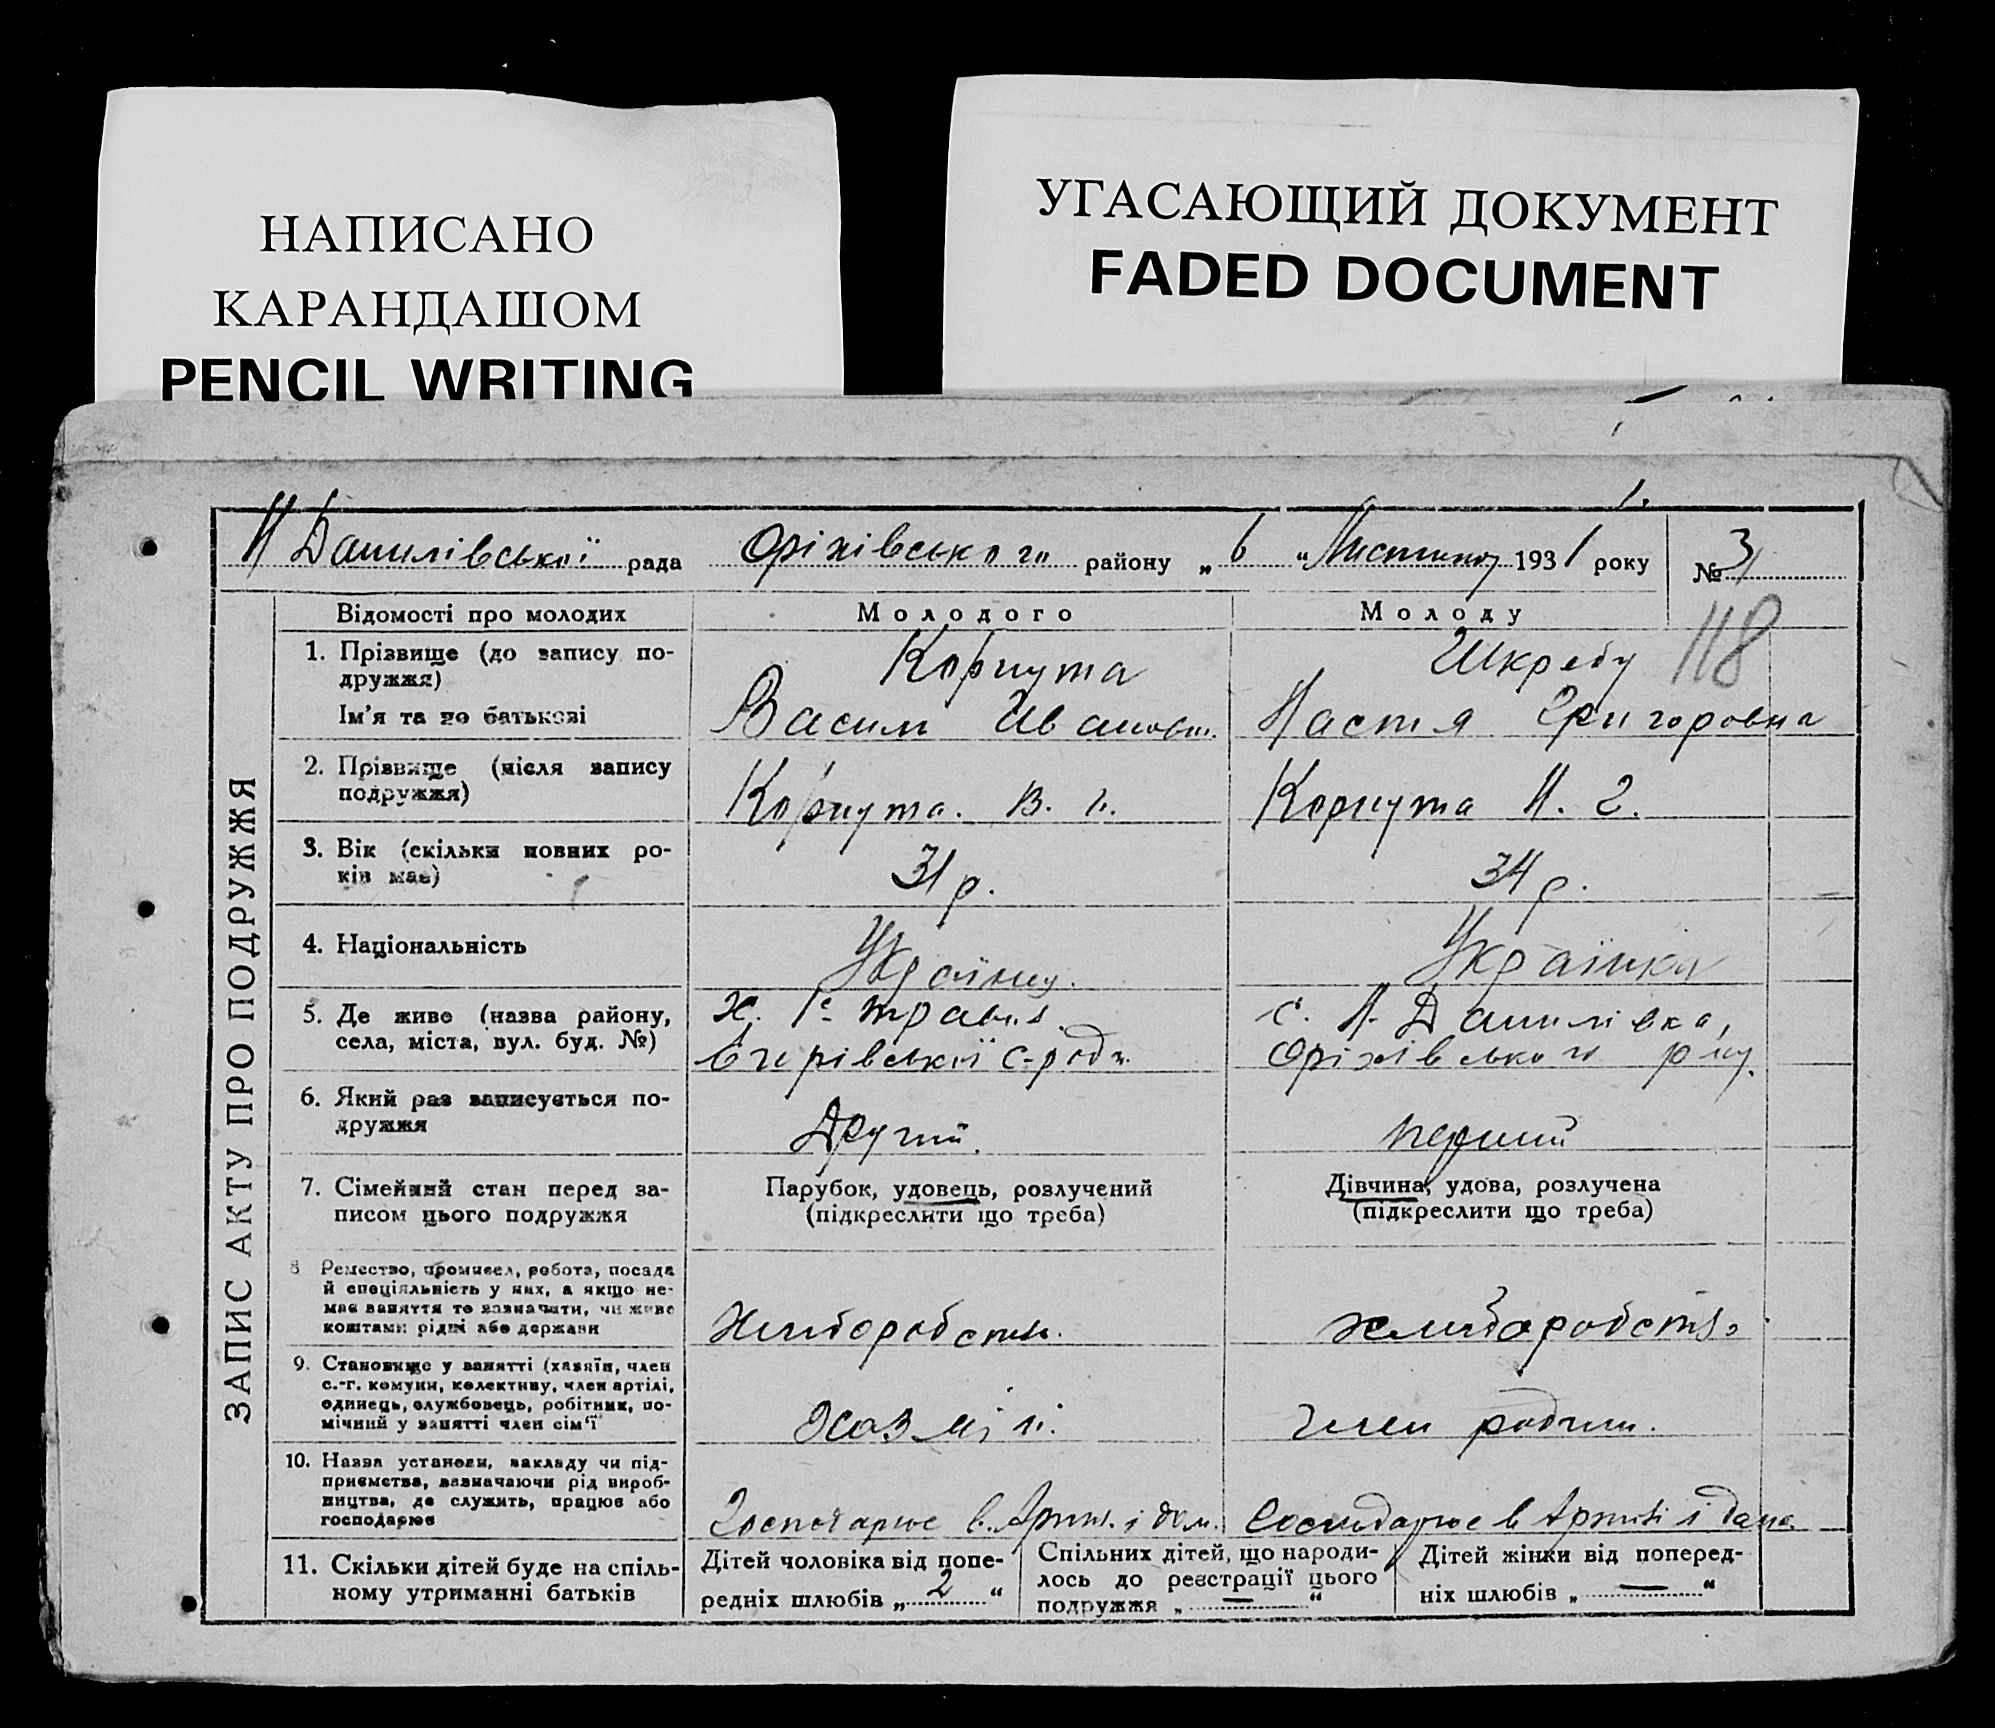 НАПИСАНО
КАРАНДАШОМ
PENCIL WRITING
УГАСАЮЩИЙ ДОКУМЕНТ
FADED DOCUMENT
Н Данилівської рада Оріхівського району „ 6 “ Листопад 1931 року № 31
118
ЗАПИС АКТУ ПРО ПОДРУЖЖЯ
Відомості про молодих Молодого Молоду
1. Прізвище (до запису по-
дружжя) Корнута Шкребу
Ім’я та по батькові Васил Іванович Настя Григоровна
2. Прізвище (після запису
подружжя) Корнута В. І. Корнута Н. Г.
3. Вік (скільки повних ро-
ків має) 31 р. 34 р.
4. Національність Українц. Українка
5. Де живе (назва району,
села, міста, вул. буд. №)
х. 1е травня с. Н. Данилівка,
с-ради Оріхівського р-ну.
6. Який раз записується по-
дружжя Другий. перший
7. Сімейний стан перед за-
писом цього подружжя
Парубок, удовець, розлучений
(підкреслити що треба)
Дівчина, удова, розлучена
(підкреслити що треба)
8 Ремество, промисел, робота, посада
й спеціяльність у них, а якщо не-
має заняття то зазначити, чи живе
коштами рідні або держави
Хліборобство. хліборобство
9. Становище у занятті (хазяїн, член
с.-г. комуни, колективу, член артілі,
одинець, службовець, робітник, по-
мічний у занятті член сім’ї
член родини.
10. Назва установи, закладу чи під-
приємства, зазначаючи рід вироб-
ництва, де служить, працює або
господарює
Господарює в Арт. і дом. Господарює в Артілі і дома
11. Скільки дітей буде на спіль-
ному утриманні батьків
Дітей чоловіка від попе-
редніх шлюбів „ 2 “
Спільних дітей, що народи-
лось до реєстрації цього
подружжя „ — “
Дітей жінки від поперед-
ніх шлюбів „ — “